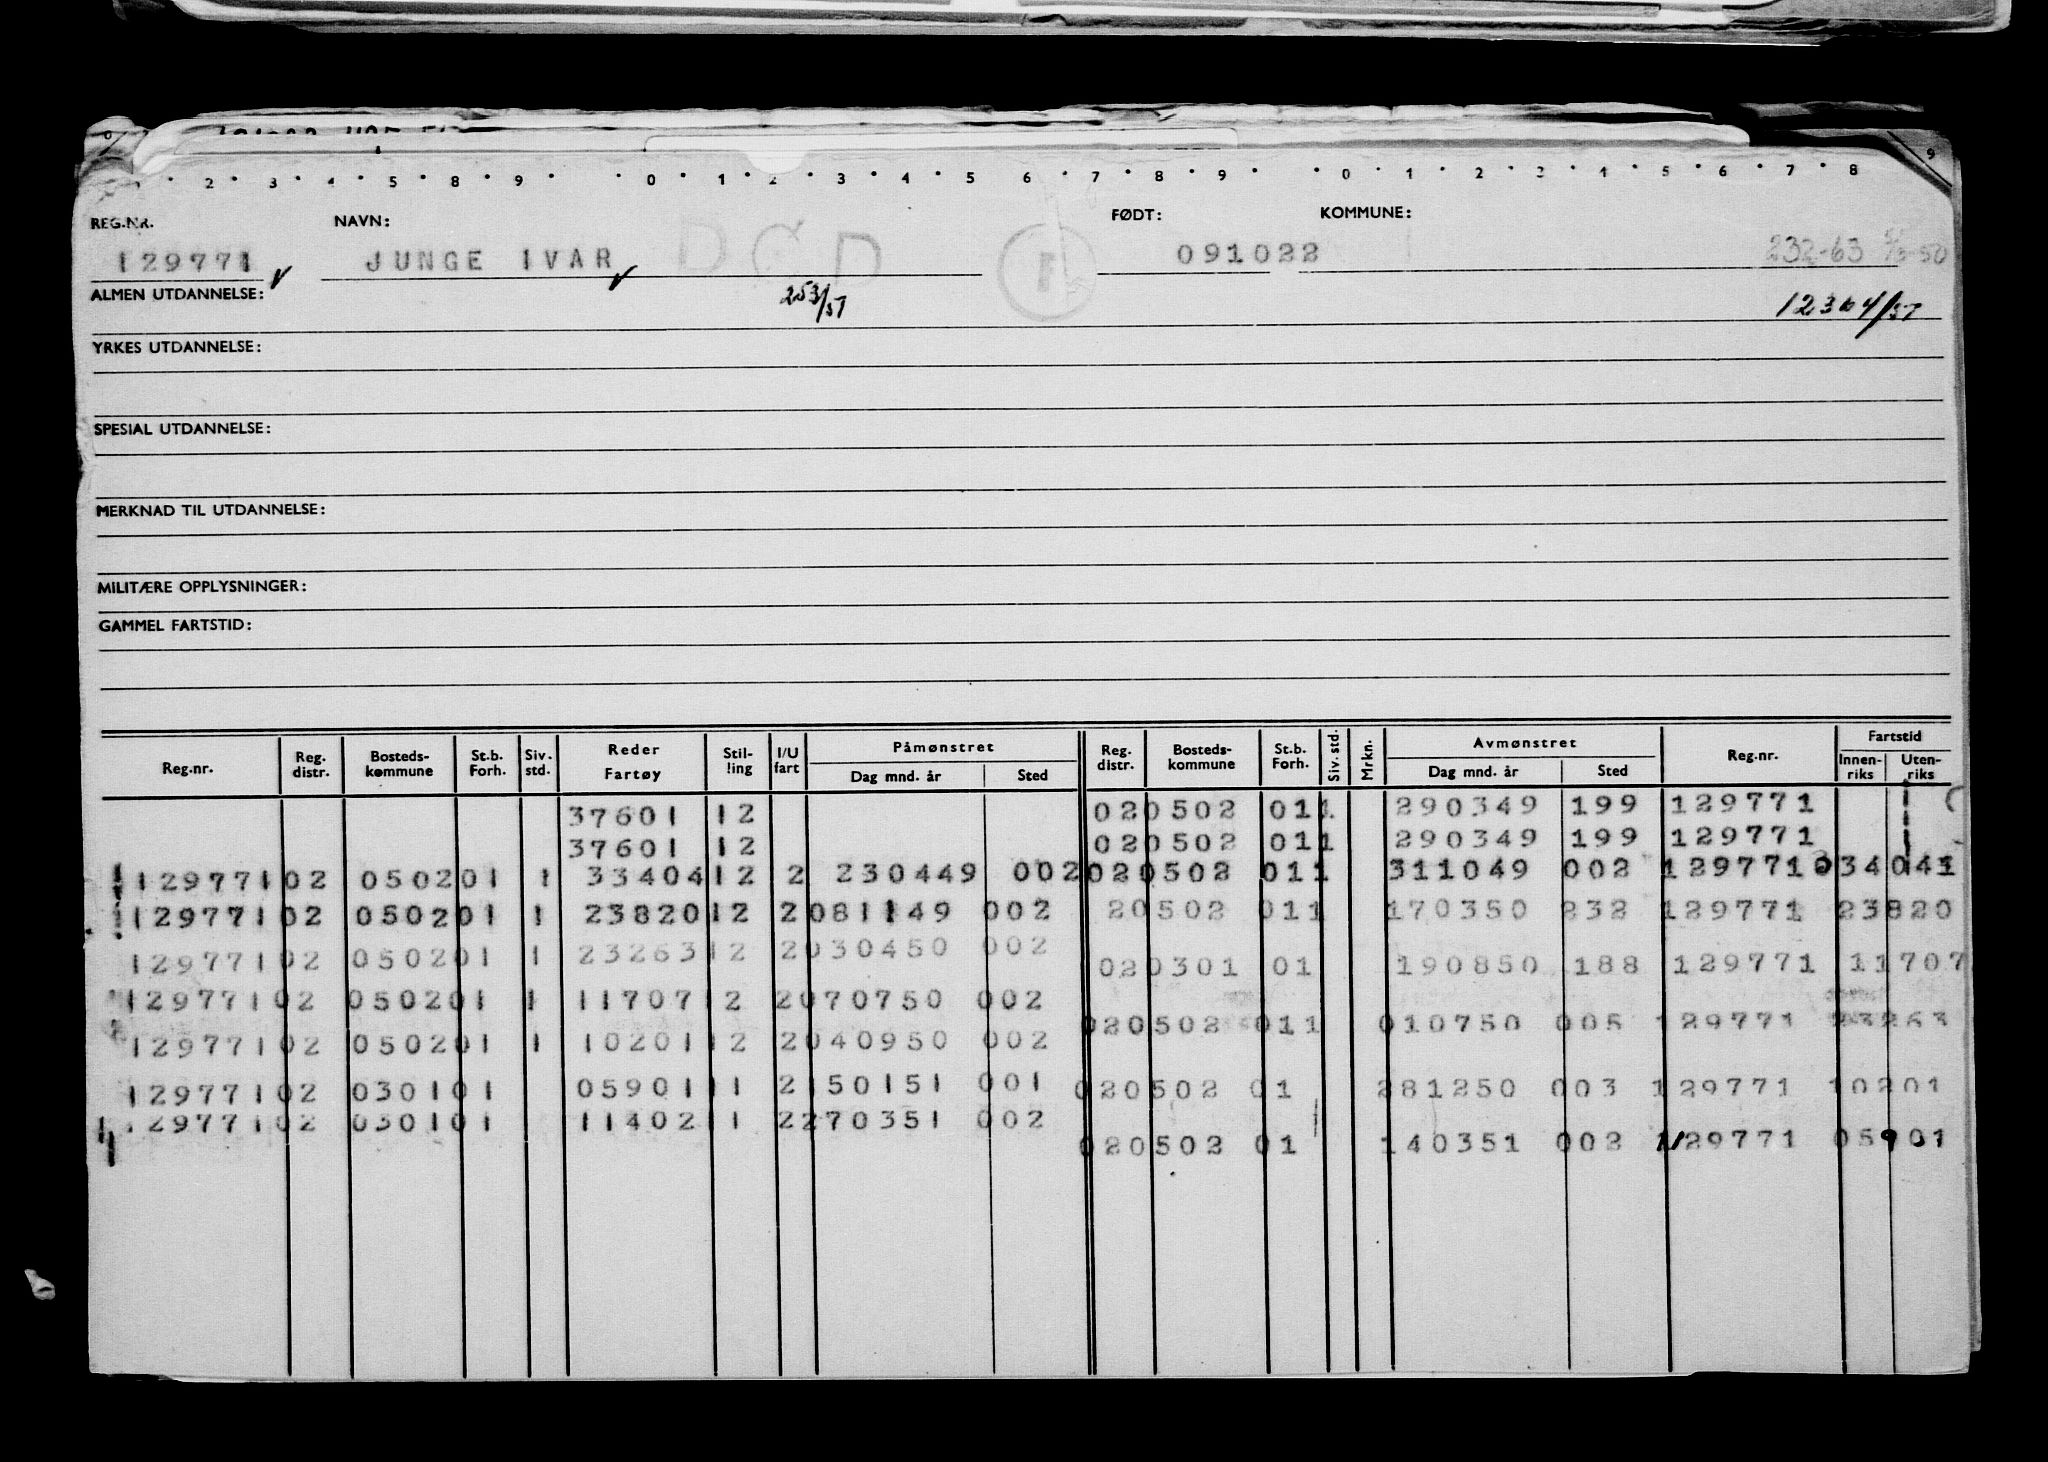 1 2 3 4 5 6 7 8 9 0 1 2 3 4 5 6 7 8 9 0 1 2 3 4 5 6 7 8 9
REG.NR. NAVN: FØDT: KOMMUNE:
129771 JUNGE IVAR DØD 1 091022 232-63
ALMEN UTDANNELSE: 253/57
YRKES UTDANNELSE:
SPESIAL UTDANNELSE:
MERKNAD TIL UTDANNELSE:
MILITÆRE OPPLYSNINGER:
GAMMEL FARTSTID:
Reg.nr. Reg. distr. Bosteds-kommune St.b. Forh. Siv. std. Reder Fartøy Stil-ling I/U fart Påmønstret Dag mnd. år Sted Reg. distr. Bosteds-kommune St.b. Forh. Siv. std. Mrkn. Avmønstret Dag mnd. år Sted Reg.nr. Fartstid Innen-riks Uten-riks
37601 12 020502 011 290349 199 129771
37601 12 020502 011 290349 199 129771
129771 02 0502 01 1 33404 12 2 230449 002 020502 011 311049 002 129771 034041
129771 02 0502 01 1 23820 12 2 081149 002 20502 011 170350 232 129771 23820
129771 02 0502 01 1 23263 12 2 030450 002 020301 01 190850 188 129771 11707
129771 02 0502 01 1 11707 12 2 070750 002 020502 011 010750 005 129771 23263
129771 02 0502 01 1 10201 12 2 040950 002
129771 02 0301 01 05901 11 2 150151 001 020502 01 281250 003 129771 10201
129771 02 0301 01 11402 11 2 270351 002
020502 01 140351 002 129771 05901